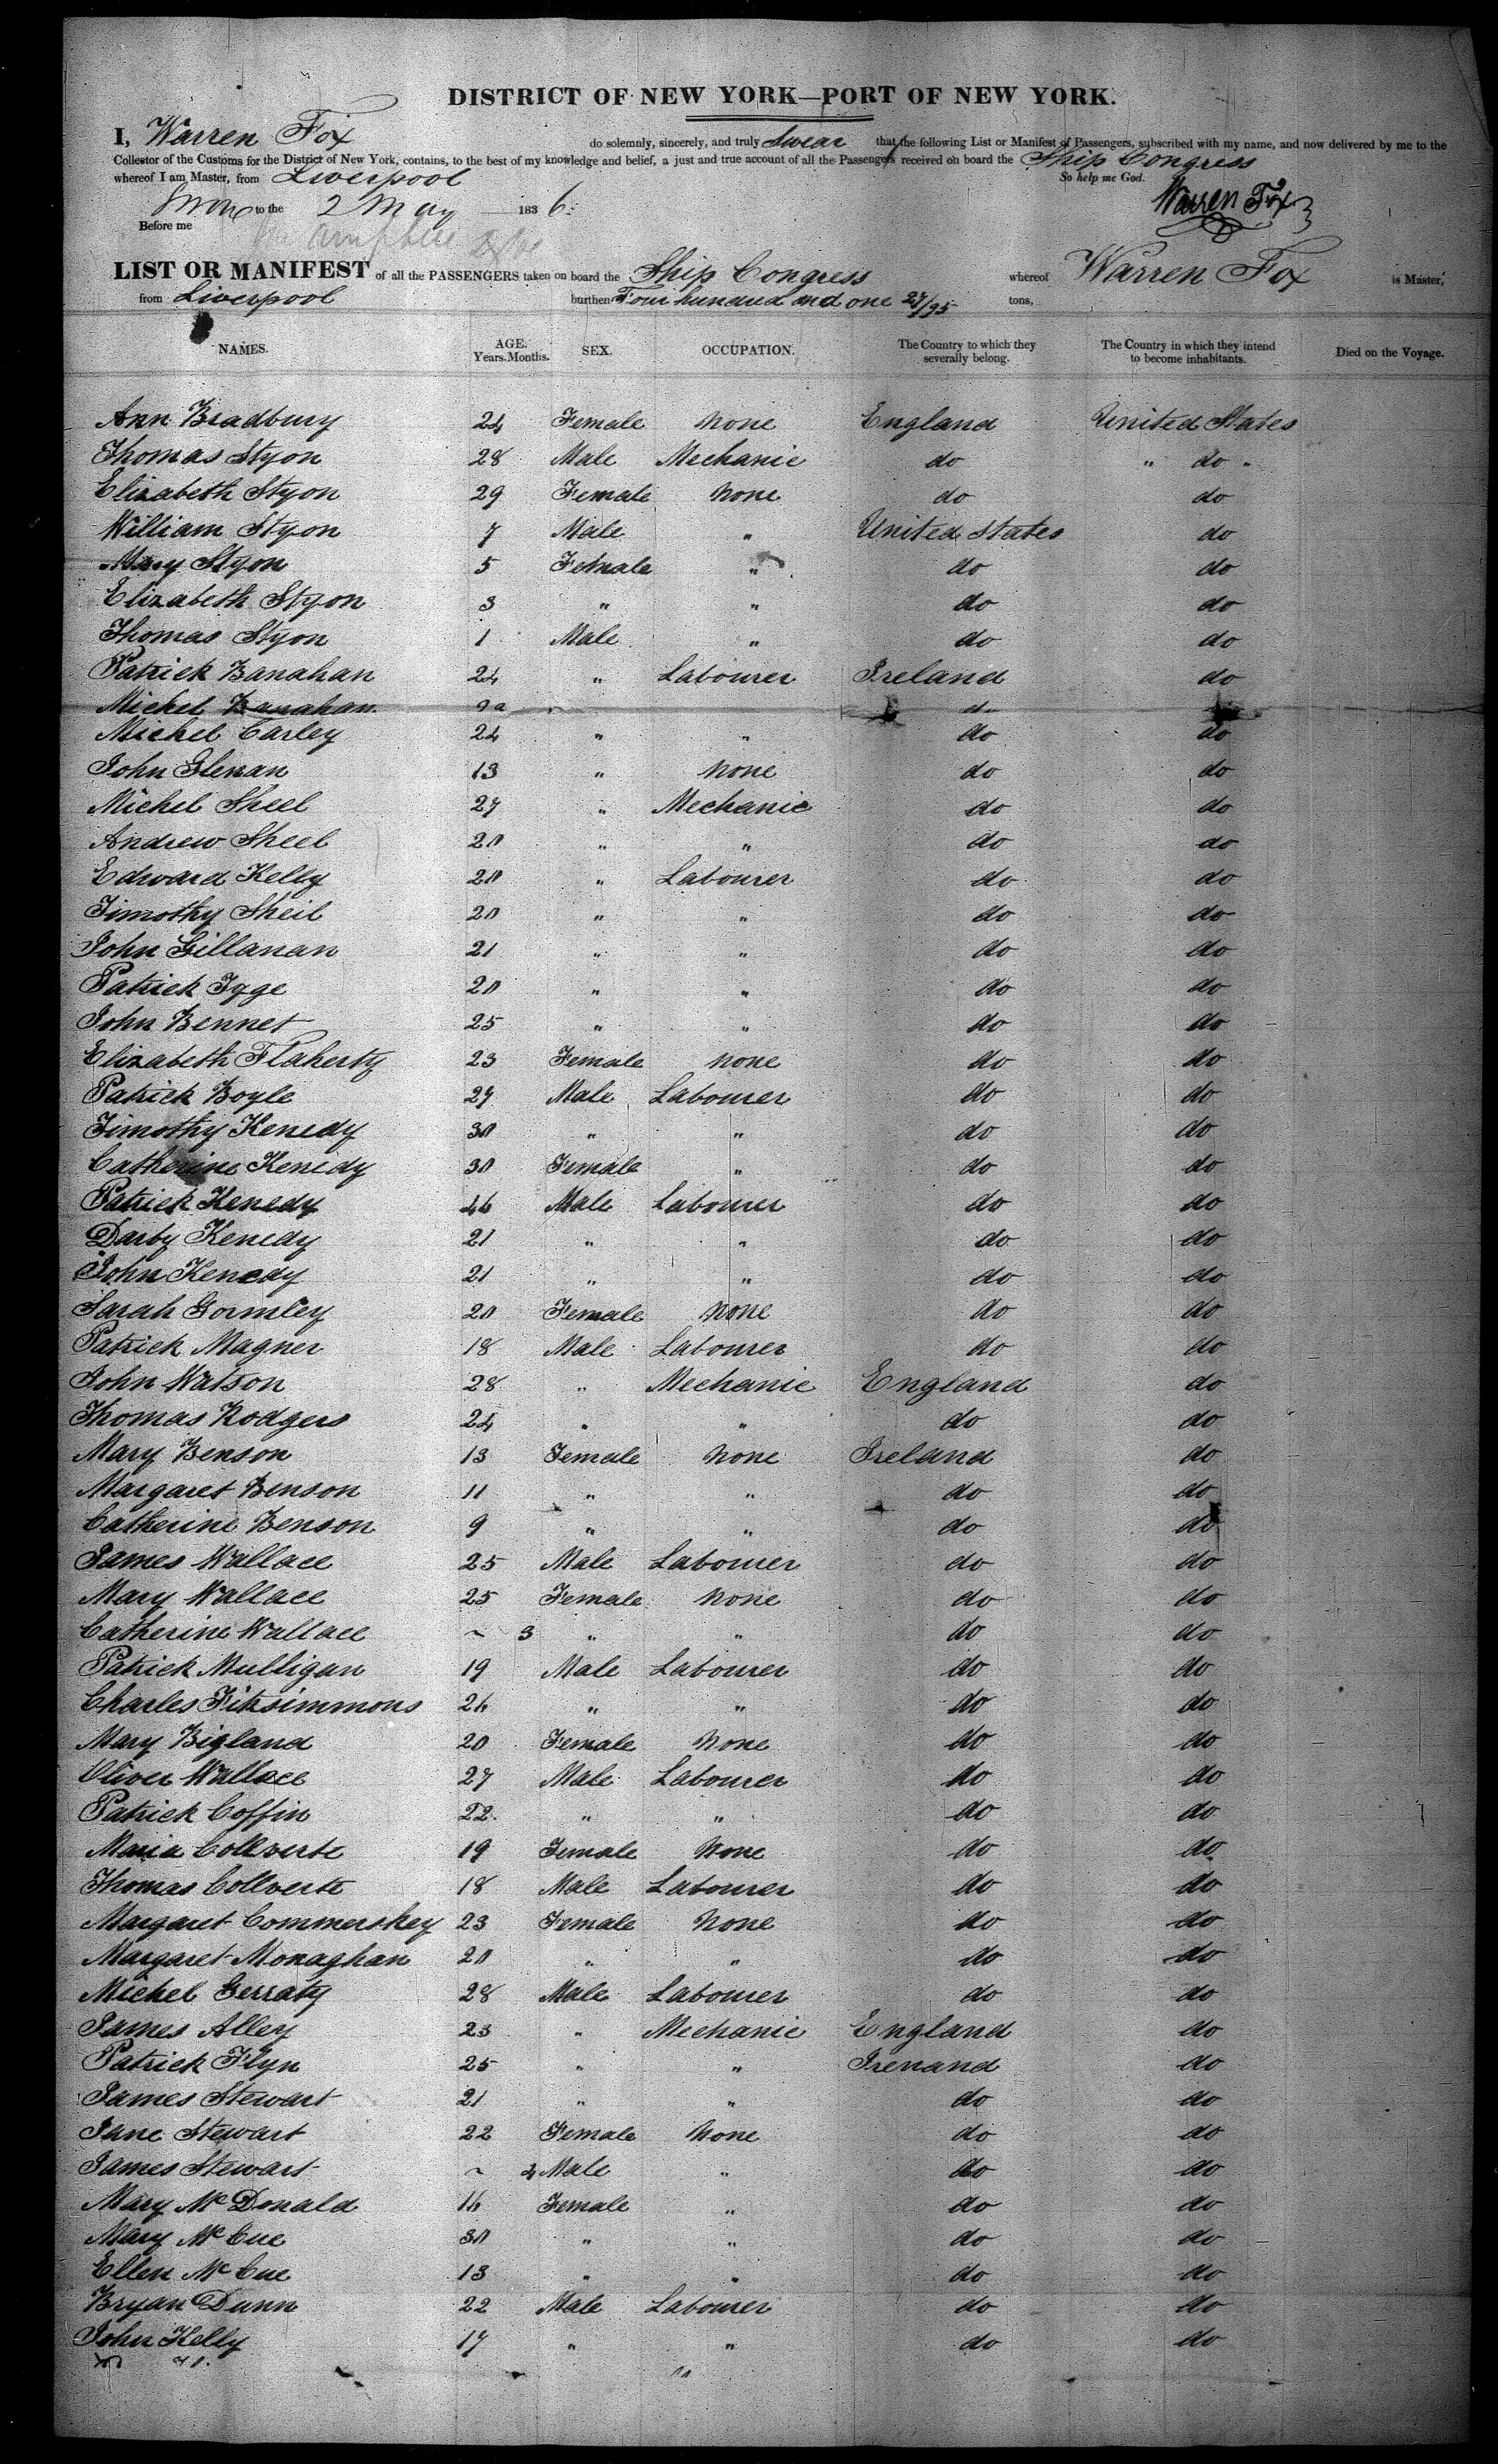 DISTRICT OF NEW YORK—PORT OF NEW YORK.
I, Warren Fox do solemnly, sincerely, and truly Swear that the following List or Manifest of Passengers, subscribed with my name, and now delivered by me to the
Collector of the Customs for the District of New York, contains, to the best of my knowledge and belief, a just and true account of all the Passengers received on board the Ship Congress
whereof I am Master, from Liverpool So help me God.
Swore to the 2 May 1836. Warren Fox
Before me
LIST OR MANIFEST of all the PASSENGERS taken on board the Ship Congress whereof Warren Fox is Master,
from Liverpool burthen Four hundred and one 27/95 tons,
NAMES. AGE. Years. Months. SEX. OCCUPATION. The Country to which they severally belong. The Country in which they intend to become inhabitants. Died on the Voyage.
Ann Bradbury 24 Female None England United States
Thomas Styon 28 Male Mechanic do " do "
Elizabeth Styon 29 Female None do do
William Styon 7 Male " United States do
Mary Styon 5 Female " do do
Elizabeth Styon 3 " " do do
Thomas Styon 1 Male " do do
Patrick Banahan 24 " Labourer Ireland do
Michel Banahan
Michel Carley 24 " " do do
John Glenan 13 " None do do
Michel Sheel 27 " Mechanic do do
Andrew Sheel 20 " " do do
Edward Kelly 20 " Labourer do do
Timothy Sheil 20 " " do do
John Gillanan 21 " " do do
Patrick Igge 20 " " do do
John Bennet 25 " " do do
Elizabeth Flaherty 23 Female None do do
Patrick Boyle 27 Male Labourer do do
Timothy Kenedy 30 " " do do
Catherine Kenedy 30 Female " do do
Patrick Kenedy 46 Male Labourer do do
Darby Kenedy 21 " " do do
John Kenedy 21 " " do do
Sarah Gormley 20 Female None do do
Patrick Magner 18 Male Labourer do do
John Watson 28 " Mechanic England do
Thomas Rodgers 24 " " do do
Mary Benson 13 Female None Ireland do
Margaret Benson 11 " " do do
Catherine Benson 9 " " do do
James Wallace 25 Male Labourer do do
Mary Wallace 25 Female None do do
Catherine Wallace ~ 3 " " do do
Patrick Mulligan 19 Male Labourer do do
Charles Fitzsimmons 26 " " do do
Mary Bigland 20 Female None do do
Oliver Wallace 27 Male Labourer do do
Patrick Coffin 22 " " do do
Maria Collverte 19 Female None do do
Thomas Collverte 18 Male Labourer do do
Margaret Commerskey 23 Female None do do
Margaret Monaghan 20 " " do do
Michel Gerraty 28 Male Labourer do do
James Alley 23 " Mechanic England do
Patrick Flyn 25 " " Irenand do
James Stewart 21 " " do do
Jane Stewart 22 Female None do do
James Stewart ~ 4 Male " do do
Mary McDonald 16 Female " do do
Mary McCue 30 " " do do
Ellen McCue 13 " " do do
Bryan Dunn 22 Male Labourer do do
John Kelly 17 " " do do